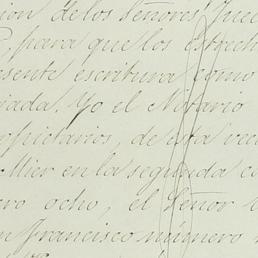 ion de los Señores Juec
, para que los estrech
esente escritura como
nada. Yo el Notario
opietarios, de esta vec
Mier en la segunda c
ero ocho, el Señor
n Francisco número